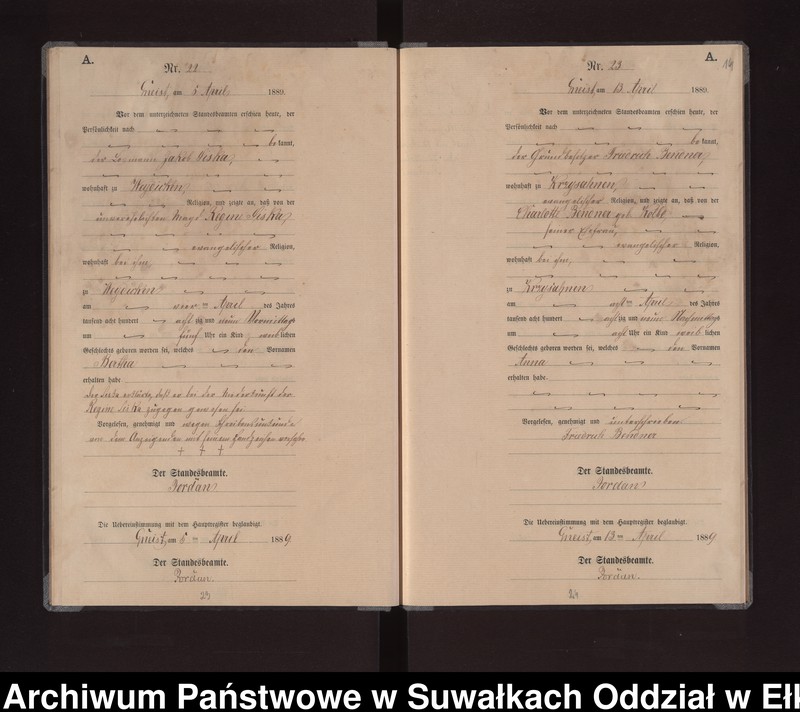 A.
Nr. 22
am 5 April 1889.
Vor dem unterzeichneten Standesbeamten erschien heute, der
Persönlichkeit nach
bekannt,
der Jakob
wohnhaft zu
Religion, und zeigte an, daß von der
unverehelichten Magd Regine
evangelischer Religion,
wohnhaft bei ihm,
zu
am vier ten April des Jahres
tausend acht hundert achtzig und neun Vormittags
um fünf Uhr ein Kind weiblichen
Geschlechts geboren worden sei, welches den Vornamen
Bertha
erhalten habe
erklärte, daß er bei der Niederkunft der
Regine zugegen gewesen sei
Vorgelesen, genehmigt und wegen
von dem Anzeigenden mit seinem Handzeichen versehen
+ + +
Der Standesbeamte.
Jordan
Die Uebereinstimmung mit dem Hauptregister beglaubigt.
am 5 ten April 1889
Der Standesbeamte.
Jordan.
23
A.
Nr. 23
am 13 April 1889.
Vor dem unterzeichneten Standesbeamten erschien heute, der
Persönlichkeit nach
bekannt,
der Grundbesitzer Friedrich
wohnhaft zu Krzysahnen,
evangelischer Religion, und zeigte an, daß von der
Charlotte geb.
seiner Ehefrau,
evangelischer Religion,
wohnhaft bei ihm,
zu Krzysahnen
am acht ten April des Jahres
tausend acht hundert achtzig und neun Nachmittags
um acht Uhr ein Kind weiblichen
Geschlechts geboren worden sei, welches den Vornamen
Anna
erhalten habe.
Vorgelesen, genehmigt und unterschrieben
Friedrich
Der Standesbeamte.
Jordan
Die Uebereinstimmung mit dem Hauptregister beglaubigt.
am 13 ten April 1889
Der Standesbeamte.
Jordan.
24
Archiwum Państwowe w Suwałkach Oddział w Ełk